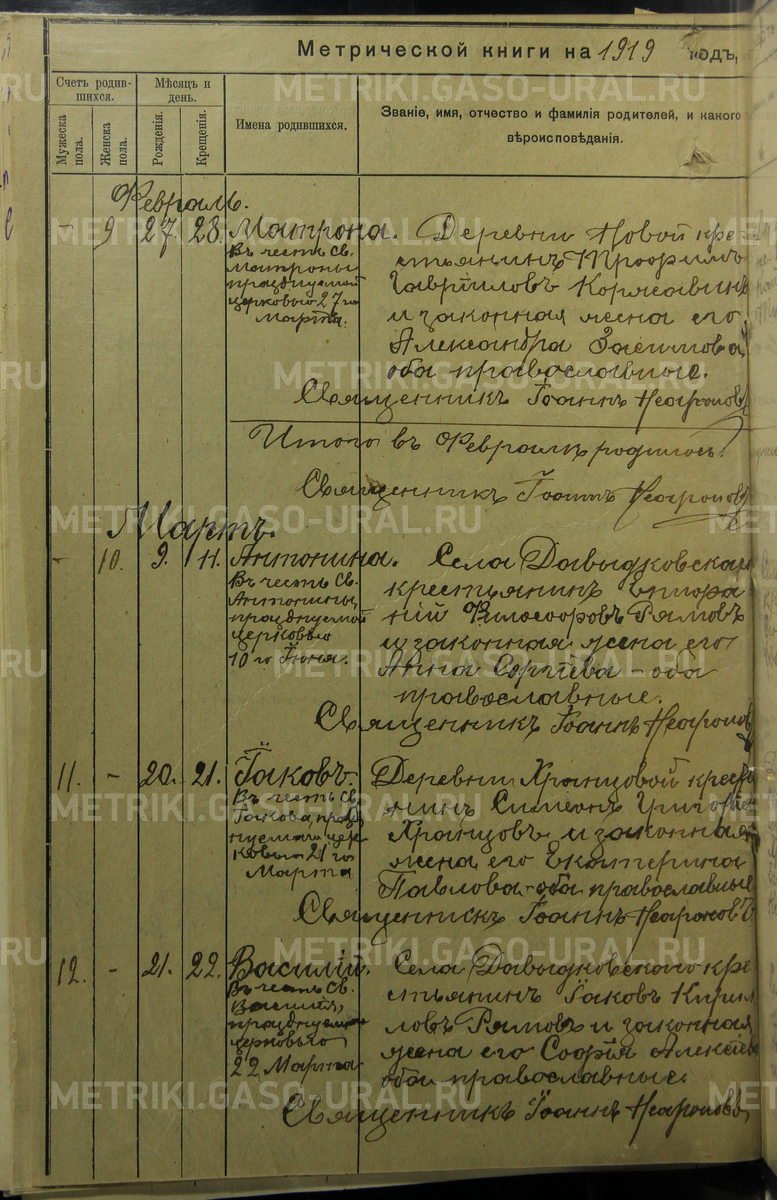 Метрической книги на 1919 годъ,
Счетъ родив-
шихся.
Мѣсяцъ и
день.
Мужеска
пола.
Женска
пола.
Рожденія.
Крещенія.
Имена родившихся.
Званіе, имя, отчество и фамилія родителей, и какого
вѣроисповѣданія.
Февраль.
- 9 27. 28. Матрона. Деревни Новой кре-
Въ честь Св.
Матроны
празднуемой
церковью 27го
Марта.
стьянинъ Трофимъ
Гавріиловъ
и законная жена его
Александра
оба православные.
Священникъ Іоаннъ
Итого въ Февралѣ родилось
Священникъ Іоаннъ
Мартъ
- 10. 9. 11. Антонина. Села Давыдковскаго
Въ честь Св.
Антонины,
празднуемой
церковью
10го Іюня.
крестьянинъ
Философовъ Рямовъ
и законная жена его
Анна Сергѣева - оба
православные.
Священникъ Іоаннъ
11. - 20. 21. Іаковъ. Деревни Хранцовой
Въ честь Св.
Іакова, празд
нуемаго цер
ковью 21го
Марта
нинъ Симеонъ
Хранцовъ и законная
жена его Екатерина
Павлова - оба православные
Священникъ Іоаннъ
12. - 21. 22. Василій. Села Давыдковского кре
Въ честь Св.
Василія,
празднуемаго
церковью
22 Марта
стьянинъ Іаковъ Кирил
ловъ Рямовъ и законная
жена его Софія
оба православные
Священникъ Іоаннъ
METRIKI.GASO-URAL.RU